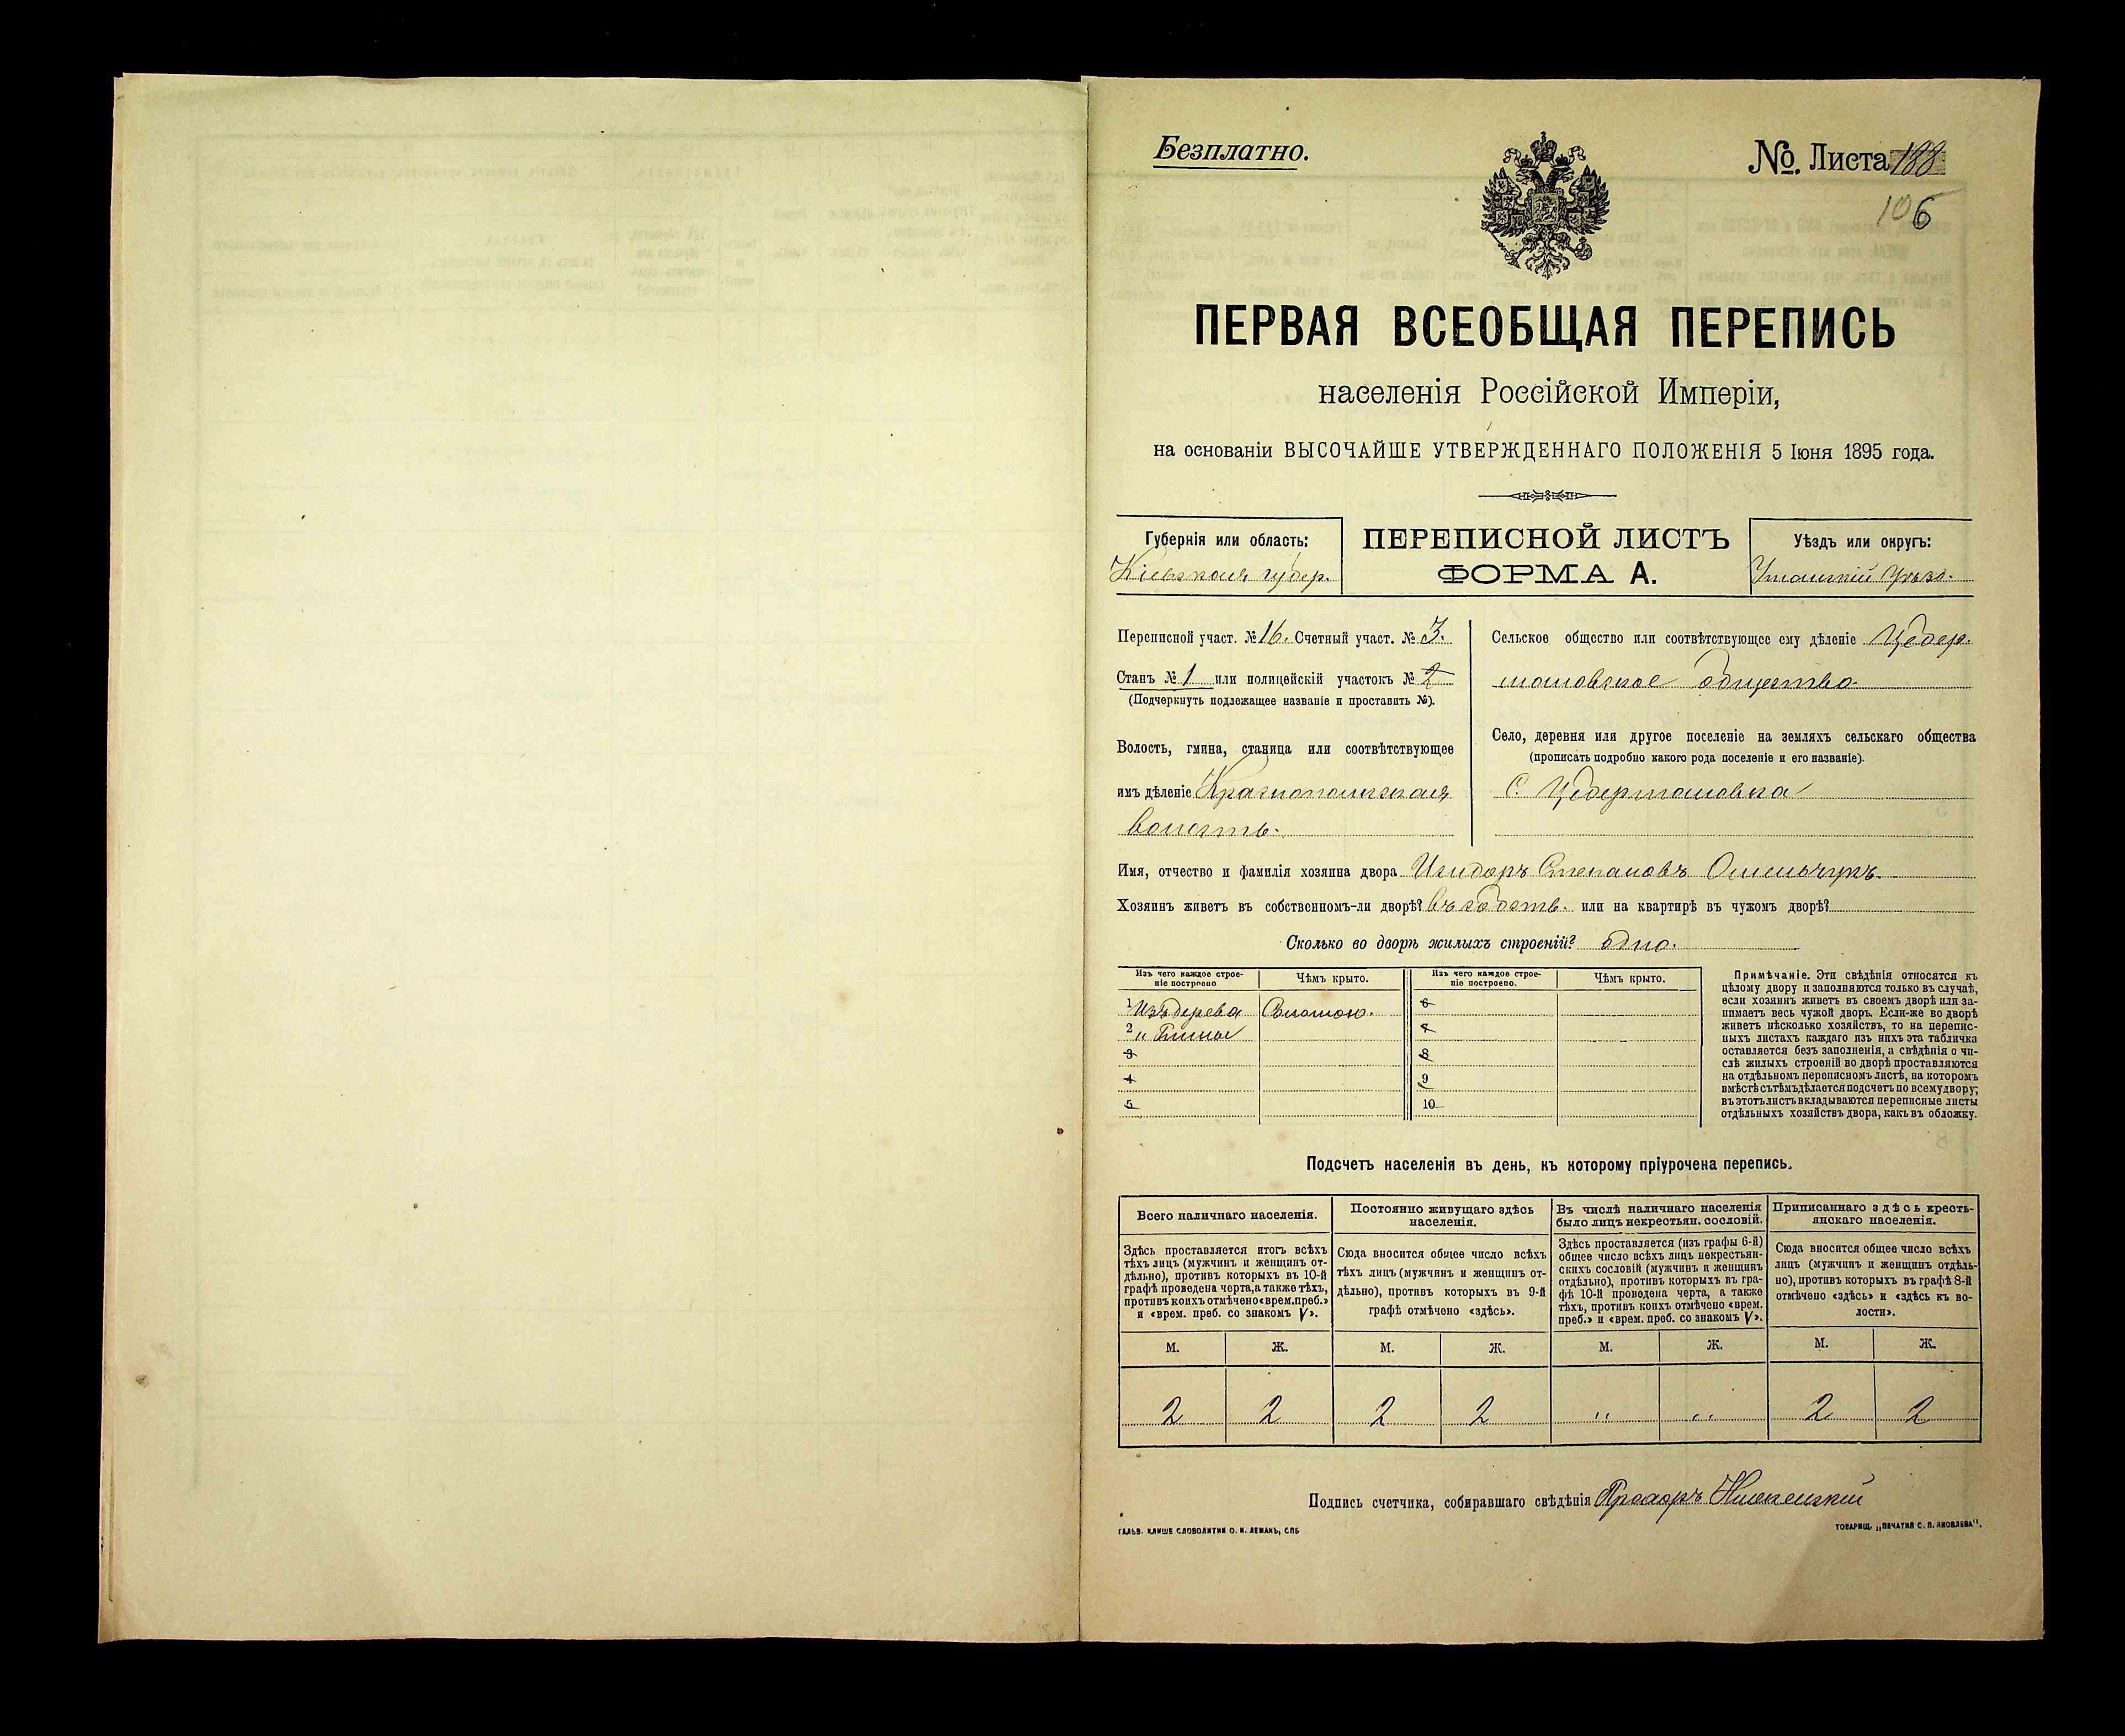 Безплатно.
№. Листа 188
106
ПЕРВАЯ ВСЕОБЩАЯ ПЕРЕПИСЬ
населенія Россійской Имперіи,
на основаніи ВЫСОЧАЙШЕ УТВЕРЖДЕННАГО ПОЛОЖЕНІЯ 5 Іюня 1895 года.
Губернія или область:
Кіевская губер.
ПЕРЕПИСНОЙ ЛИСТЪ
ФОРМА А.
Уѣздъ или округъ:
Уманскій Уѣзд.
Переписной участ. № 16. Счетный участ. № 3.
Станъ № 1 или полицейскій участокъ № 2
(Подчеркнуть подлежащее названіе и проставить №).
Волость, гмина, станица или соотвѣтствующее
имъ дѣленіе Краснопольская
волость.
Сельское общество или соотвѣтствующее ему дѣленіе Цебер.
мановское общество
Село, деревня или другое поселеніе на земляхъ сельскаго общества
(прописать подробно какого рода поселеніе и его названіе).
С. Цебермановка
Имя, отчество и фамилія хозяина двора Исидоръ Степановъ Омельчукъ
Хозяинъ живетъ въ собственномъ-ли дворѣ? въ собств. или на квартирѣ въ чужомъ дворѣ?
Сколько во дворѣ жилыхъ строеній? одно.
Изъ чего каждое строе-
ніе построено
Чѣмъ крыто.
Изъ чего каждое строе-
ніе построено.
Чѣмъ крыто.
1 Изъ дерева Соломою. 6
2 и глины 7
3 8
4 9
5 10
Примѣчаніе. Эти свѣдѣнія относятся къ
цѣлому двору и заполняются только въ случаѣ,
если хозяинъ живетъ въ своемъ дворѣ или за-
нимаетъ весь чужой дворъ. Если-же во дворѣ
живетъ нѣсколько хозяйствъ, то на перепис-
ныхъ листахъ каждаго изъ нихъ эта табличка
оставляется безъ заполненія, а свѣдѣнія о чи-
слѣ жилыхъ строеній во дворѣ проставляются
на отдѣльномъ переписномъ листѣ, на которомъ
вмѣстѣ съ тѣмъ дѣлается подсчетъ по всему двору;
въ этотъ листъ вкладываются переписные листы
отдѣльныхъ хозяйствъ двора, какъ въ обложку.
Подсчетъ населенія въ день, къ которому пріурочена перепись.
Всего наличнаго населенія.
Постоянно живущаго здѣсь
населенія.
Въ числѣ наличнаго населенія
было лицъ некрестьян. сословій.
Приписаннаго здѣсь кресть-
янскаго населенія.
Здѣсь проставляется итогъ всѣхъ
тѣхъ лицъ (мужчинъ и женщинъ от-
дѣльно), противъ которыхъ въ 10-й
графѣ проведена черта, а также тѣхъ,
противъ коихъ отмѣчено «врем. преб.»
и «врем. преб. со знакомъ V».
Сюда вносится общее число всѣхъ
тѣхъ лицъ (мужчинъ и женщинъ от-
дѣльно), противъ которыхъ въ 9-й
графѣ отмѣчено «здѣсь».
Здѣсь проставляется (изъ графы 6-й)
общее число всѣхъ лицъ некрестьян-
скихъ сословій (мужчинъ и женщинъ
отдѣльно), противъ которыхъ въ гра-
фѣ 10-й проведена черта, а также
тѣхъ, противъ коихъ отмѣчено «врем.
преб.» и «врем. преб. со знакомъ V».
Сюда вносится общее число всѣхъ
лицъ (мужчинъ и женщинъ отдѣль-
но), противъ которыхъ въ графѣ 8-й
отмѣчено «здѣсь» и «здѣсь къ во-
лости».
М. Ж. М. Ж. М. Ж. М. Ж.
2 2 2 2 " " 2 2
Подпись счетчика, собиравшаго свѣдѣнія Прохоръ
ГАЛЬВ. КЛИШЕ СЛОВОЛИТНИ О. И. ЛЕМАНЪ, СПБ
ТОВАРИЩ. „ПЕЧАТНЯ С. П. ЯКОВЛЕВА".